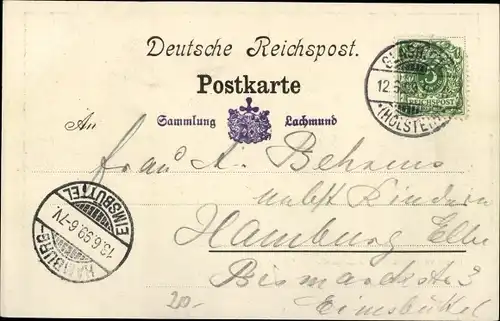 Deutsche Reichspost.
Postkarte
Sammlung Lachmund
An
12.6.99
(HOLSTEIN)
REICHSPOST
5
Frau A. Behrens
nebst Kindern
Hamburg Elbe
Bismarckstr 3
Eimsbüttel
HAMBURG-
EIMSBÜTTEL
13.6.99.6-7V.
20.-